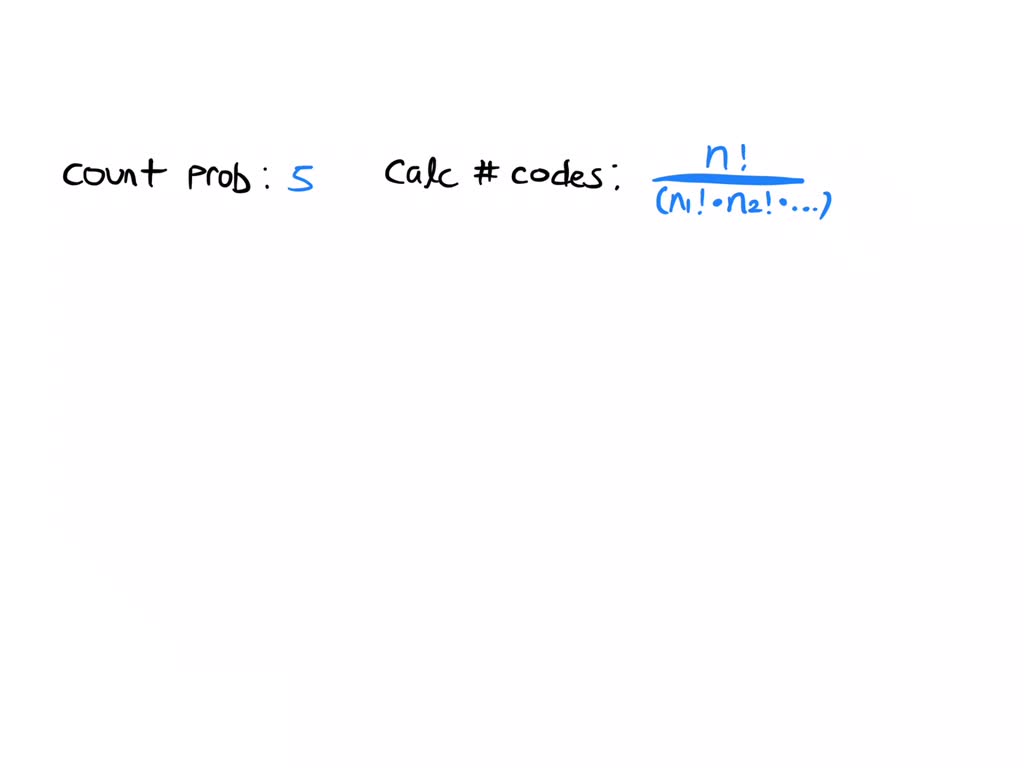 count prob: 5 Calc # codes: n! / (n1!•n2!•...)